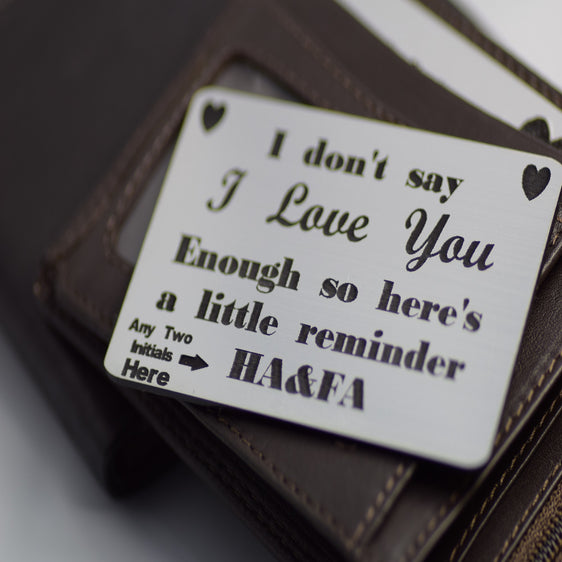 I don't say
I Love You
Enough so here's
a little reminder
Any Two
Initials
Here
HA&FA